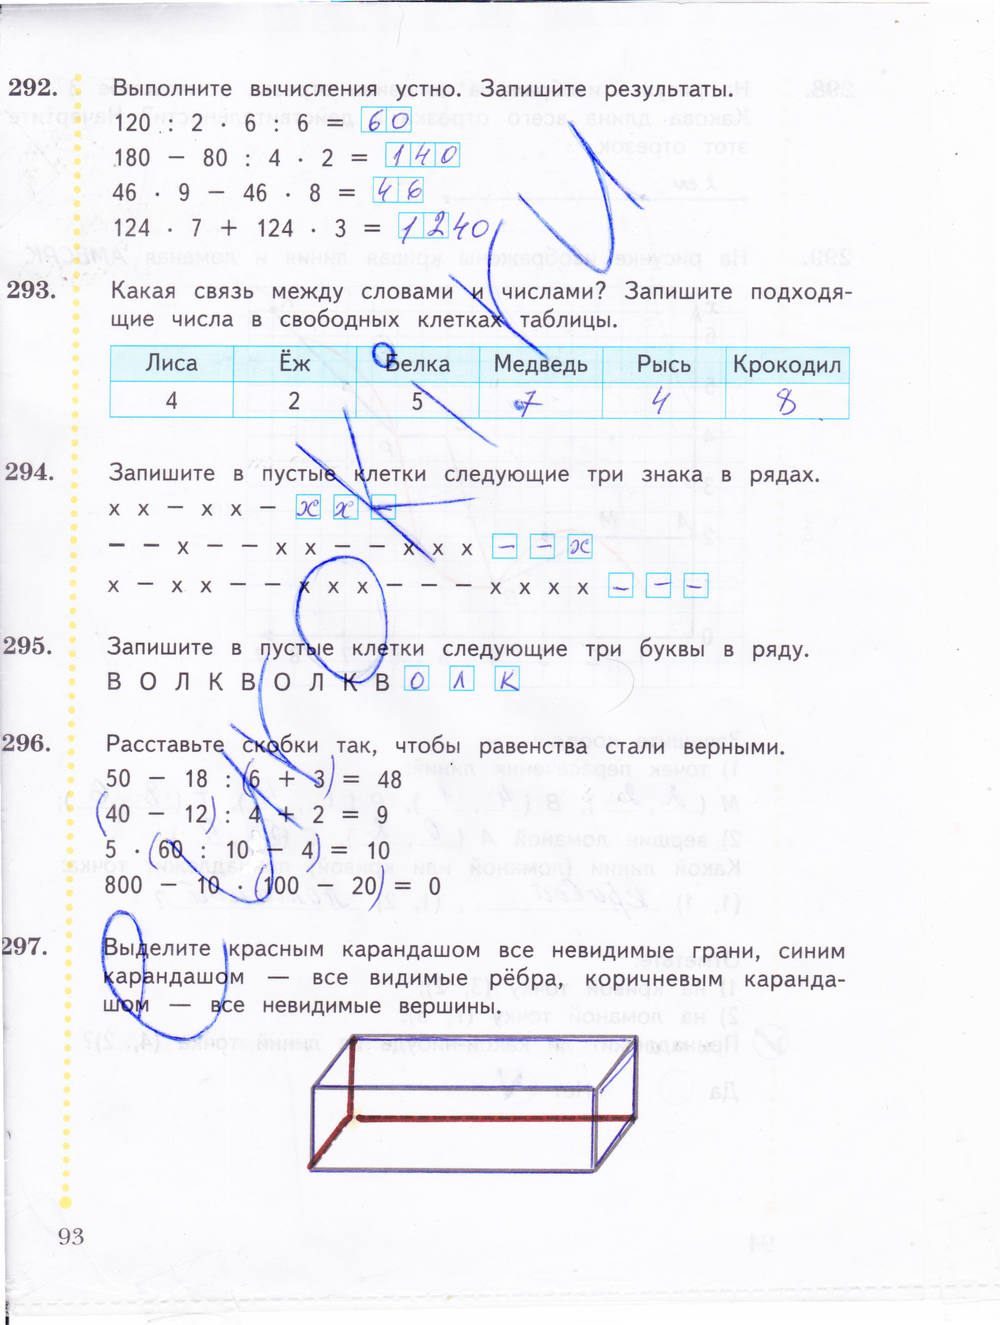 292. Выполните вычисления устно. Запишите результаты.
120 : 2 · 6 : 6 = 60
180 − 80 : 4 · 2 = 140
46 · 9 − 46 · 8 = 46
124 · 7 + 124 · 3 = 1240
293. Какая связь между словами и числами? Запишите подходя-
щие числа в свободных клетках таблицы.
Лиса Ёж Белка Медведь Рысь Крокодил
4 2 5 7 4 8
294. Запишите в пустые клетки следующие три знака в рядах.
х х — х х — х х —
— — х — — х х — — х х х — — х
х — х х — — х х х — — — х х х х — — —
295. Запишите в пустые клетки следующие три буквы в ряду.
В О Л К В О Л К В О Л К
296. Расставьте скобки так, чтобы равенства стали верными.
50 − 18 : (6 + 3) = 48
(40 − 12) : 4 + 2 = 9
5 · (60 : 10 − 4) = 10
800 − 10 · 100 − 20) = 0
297. Выделите красным карандашом все невидимые грани, синим
карандашом — все видимые рёбра, коричневым каранда-
шом — все невидимые вершины.
93